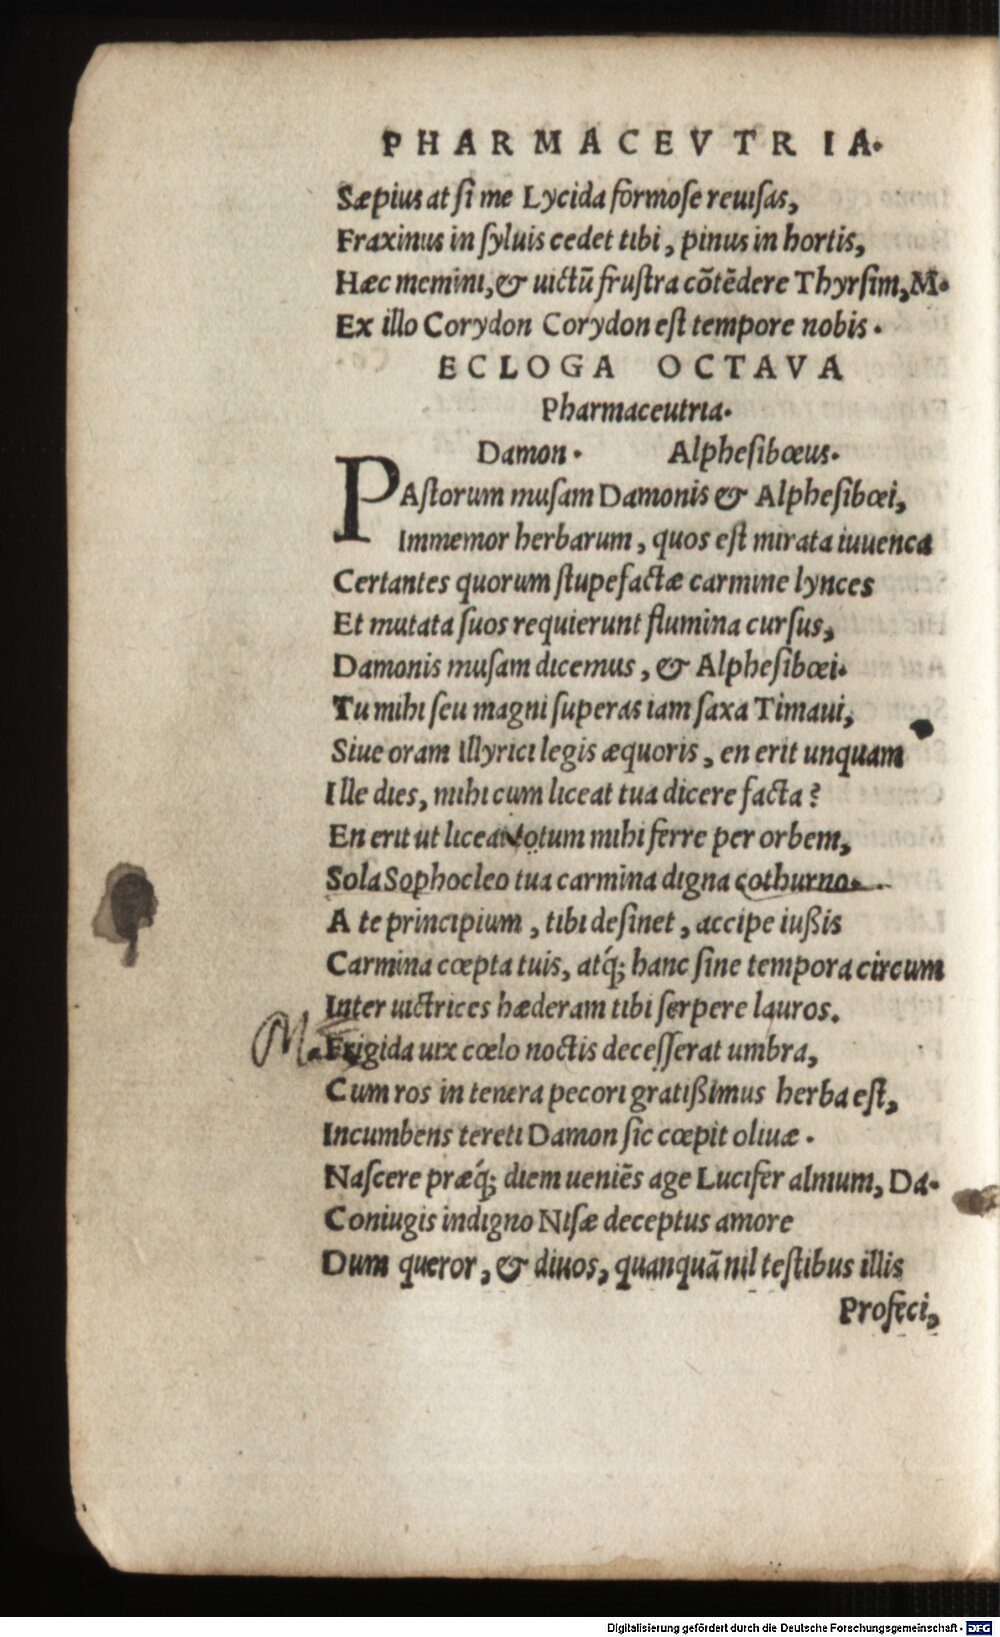 PHARMACEVTRIA.
Sæpius at ſi me Lycida formoſe reuiſas,
Fraxinus in ſyluis cedet tibi, pinus in hortis,
Hæc memini, & uictū fruſtra cōtēdere Thyrſim, M.
Ex illo Corydon Corydon eſt tempore nobis.
ECLOGA OCTAVA
Pharmaceutria.
Damon. Alpheſibœus.
PAſtorum muſam Damonis & Alpheſibœi,
Immemor herbarum, quos eſt mirata iuuenca
Certantes quorum ſtupefactæ carmine lynces
Et mutata ſuos requierunt flumina curſus,
Damonis muſam dicemus, & Alpheſibœi.
Tu mihi ſeu magni ſuperas iam ſaxa Timaui,
Siue oram Illyrici legis æquoris, en erit unquam
Ille dies, mihi cum liceat tua dicere facta?
En erit ut liceat totum mihi ferre per orbem,
Sola Sophocleo tua carmina digna cothurno.
A te principium, tibi deſinet, accipe iußis
Carmina cœpta tuis, atq́; hanc ſine tempora circum
Inter uictrices hæderam tibi ſerpere lauros.
M. Frigida uix cœlo noctis deceſſerat umbra,
Cum ros in tenera pecori gratißimus herba eſt,
Incumbens tereti Damon ſic cœpit oliuæ.
Naſcere præq́; diem ueniēs age Lucifer almum, Da.
Coniugis indigno Niſæ deceptus amore
Dum queror, & diuos, quanquā nil teſtibus illis
Profeci,
Digitalisierung gefördert durch die Deutsche Forschungsgemeinschaft - DFG